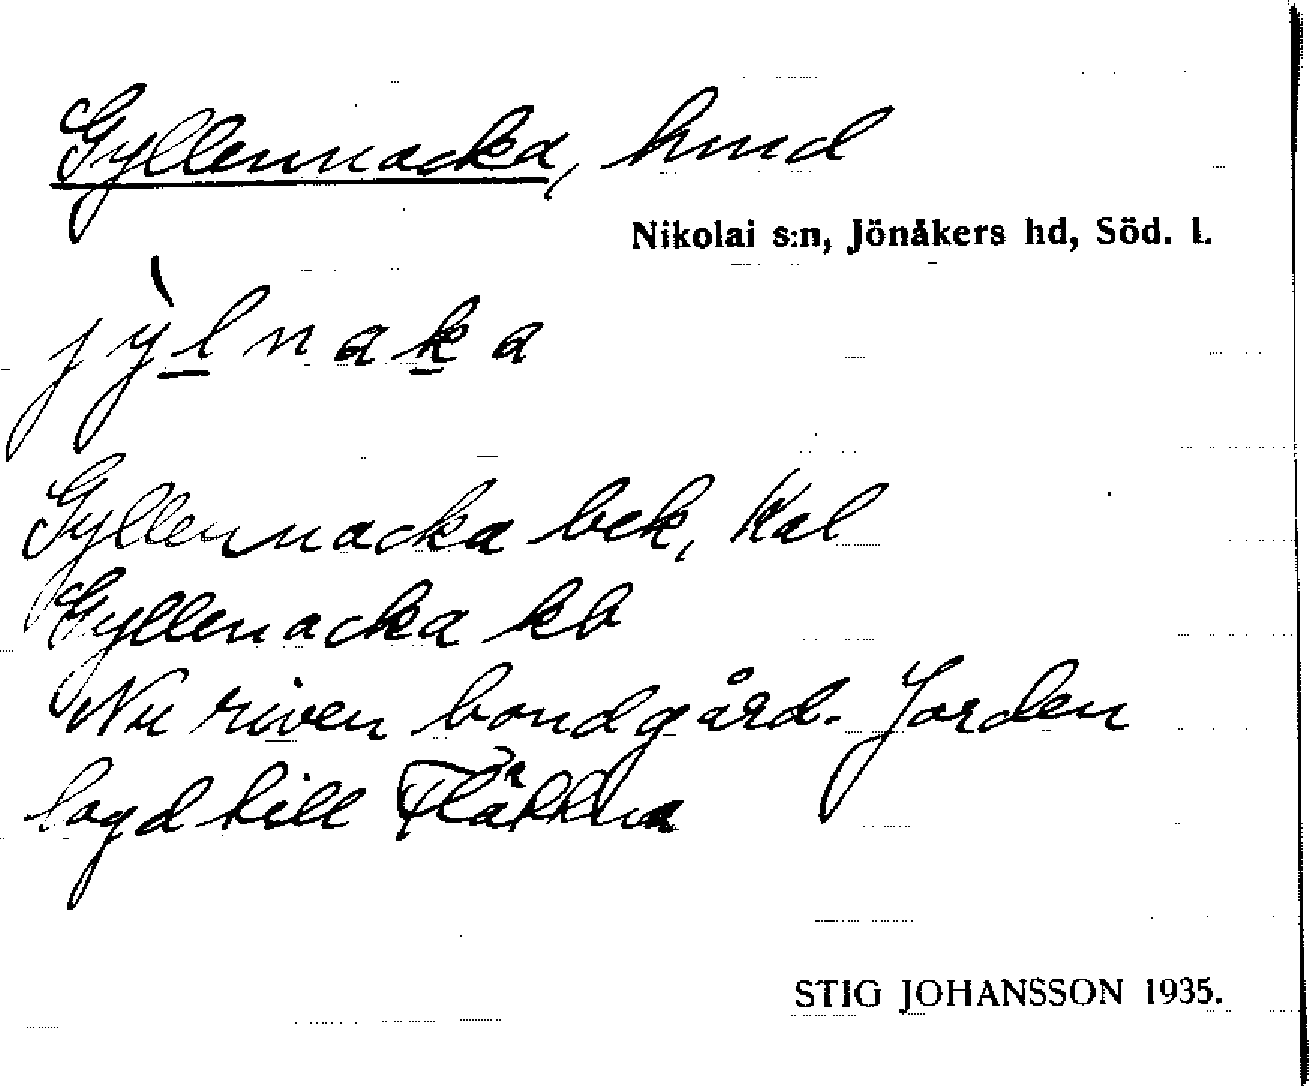 Gyllennacka, hmd
Nikolai s:n, Jönåkers hd, Söd. l.
jỳlnaka
Gyllennacka bek, Kal
Gyllenacka kb
Nu riven bondgård. Jorden
lagd till
STIG JOHANSSON 1935.